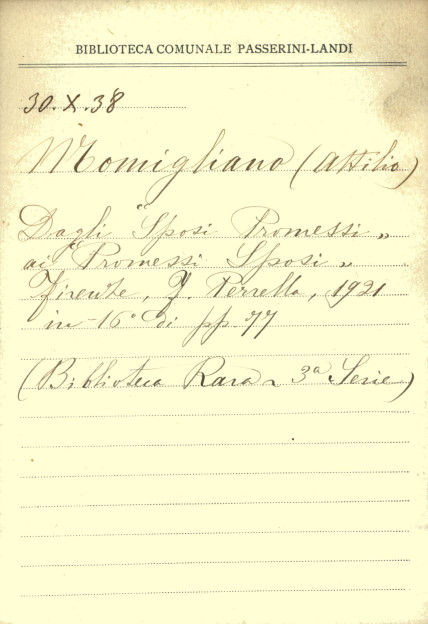 BIBLIOTECA COMUNALE PASSERINI-LANDI
30.X.38
Momigliano (Attilio)
Dagli "Sposi Promessi„
ai "Promessi Sposi„
Firenze, F. Perrella, 1921
in-16° di pp. 77
(Biblioteca Rara - 3ª Serie)